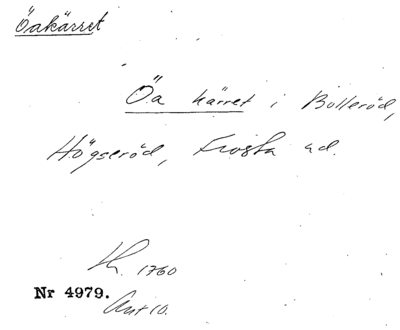 Öakärret
Öa kärret i Bolleröd,
Högseröd, Frosta hd.
1760
Nr 4979.
Akt 10.